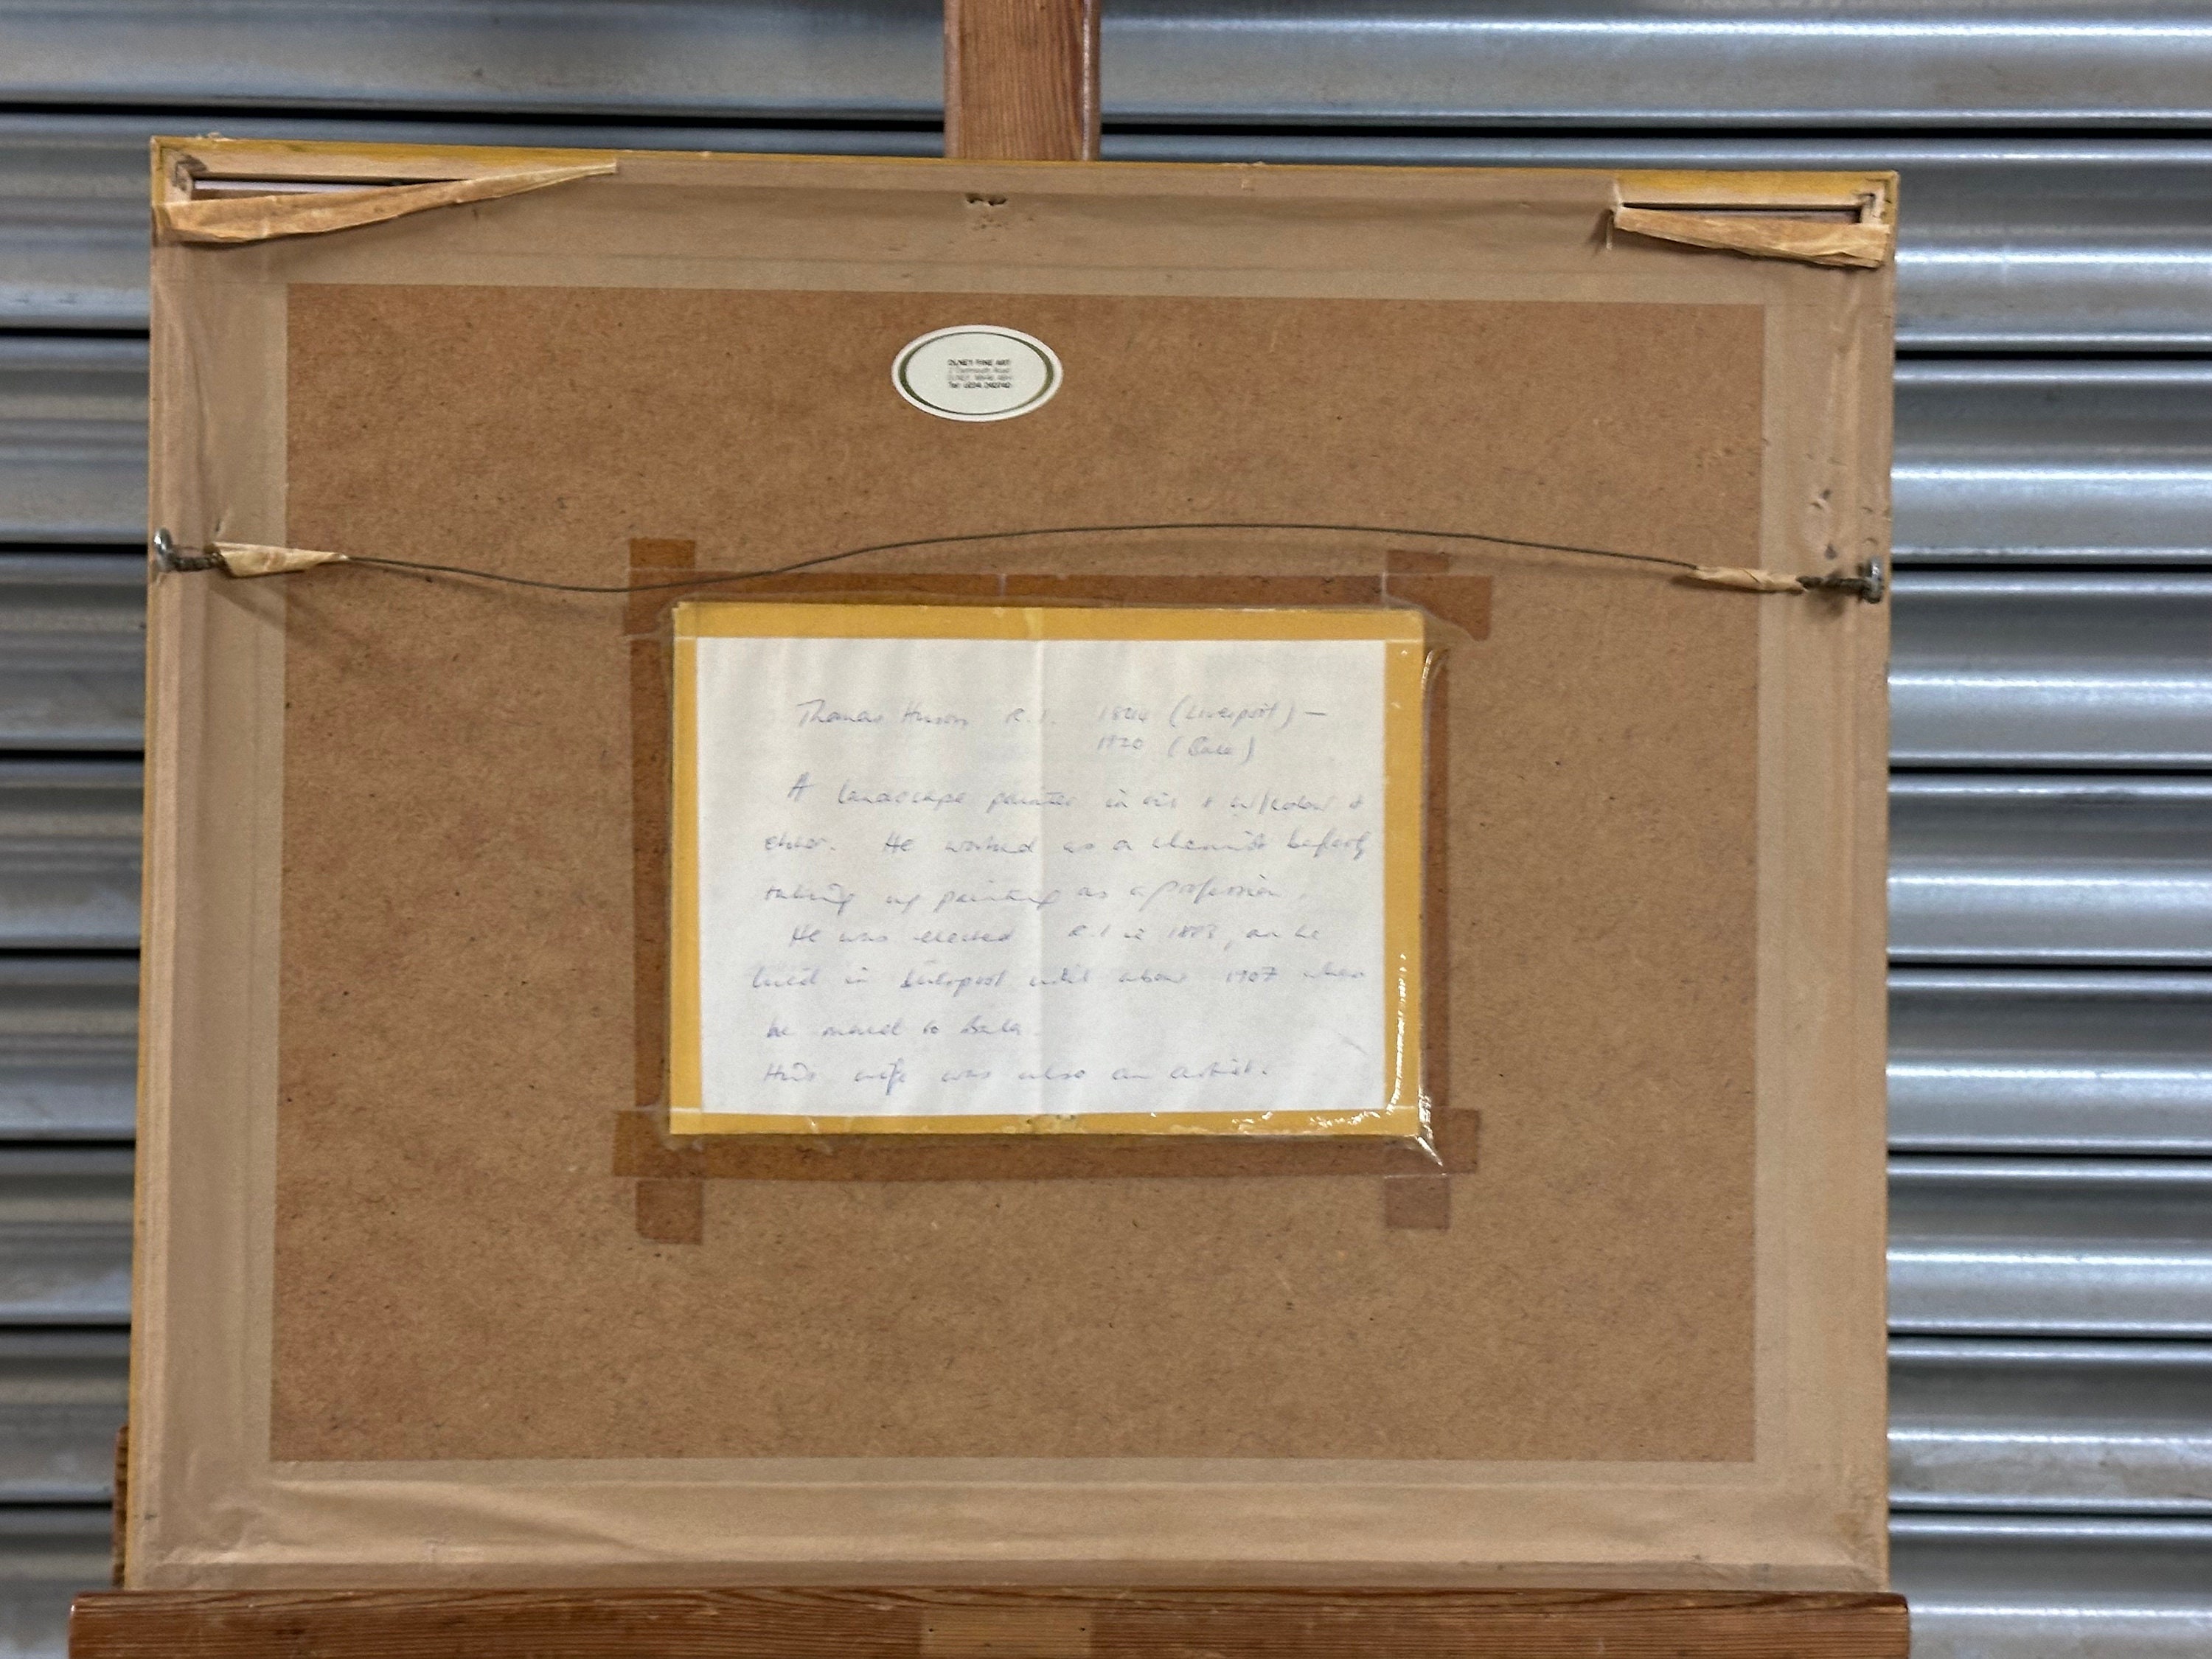 OLNEY FINE ART
OLNEY
Thomas Huson R.I. 1844 (Liverpool) –
1920 (Bala)
A landscape painter in oil + w/colour +
etcher. He worked as a chemist before
taking up painting as a profession.
He was elected R.I in 1883, he
lived in Liverpool until about 1907 when
he moved to Bala.
His wife was also an artist.